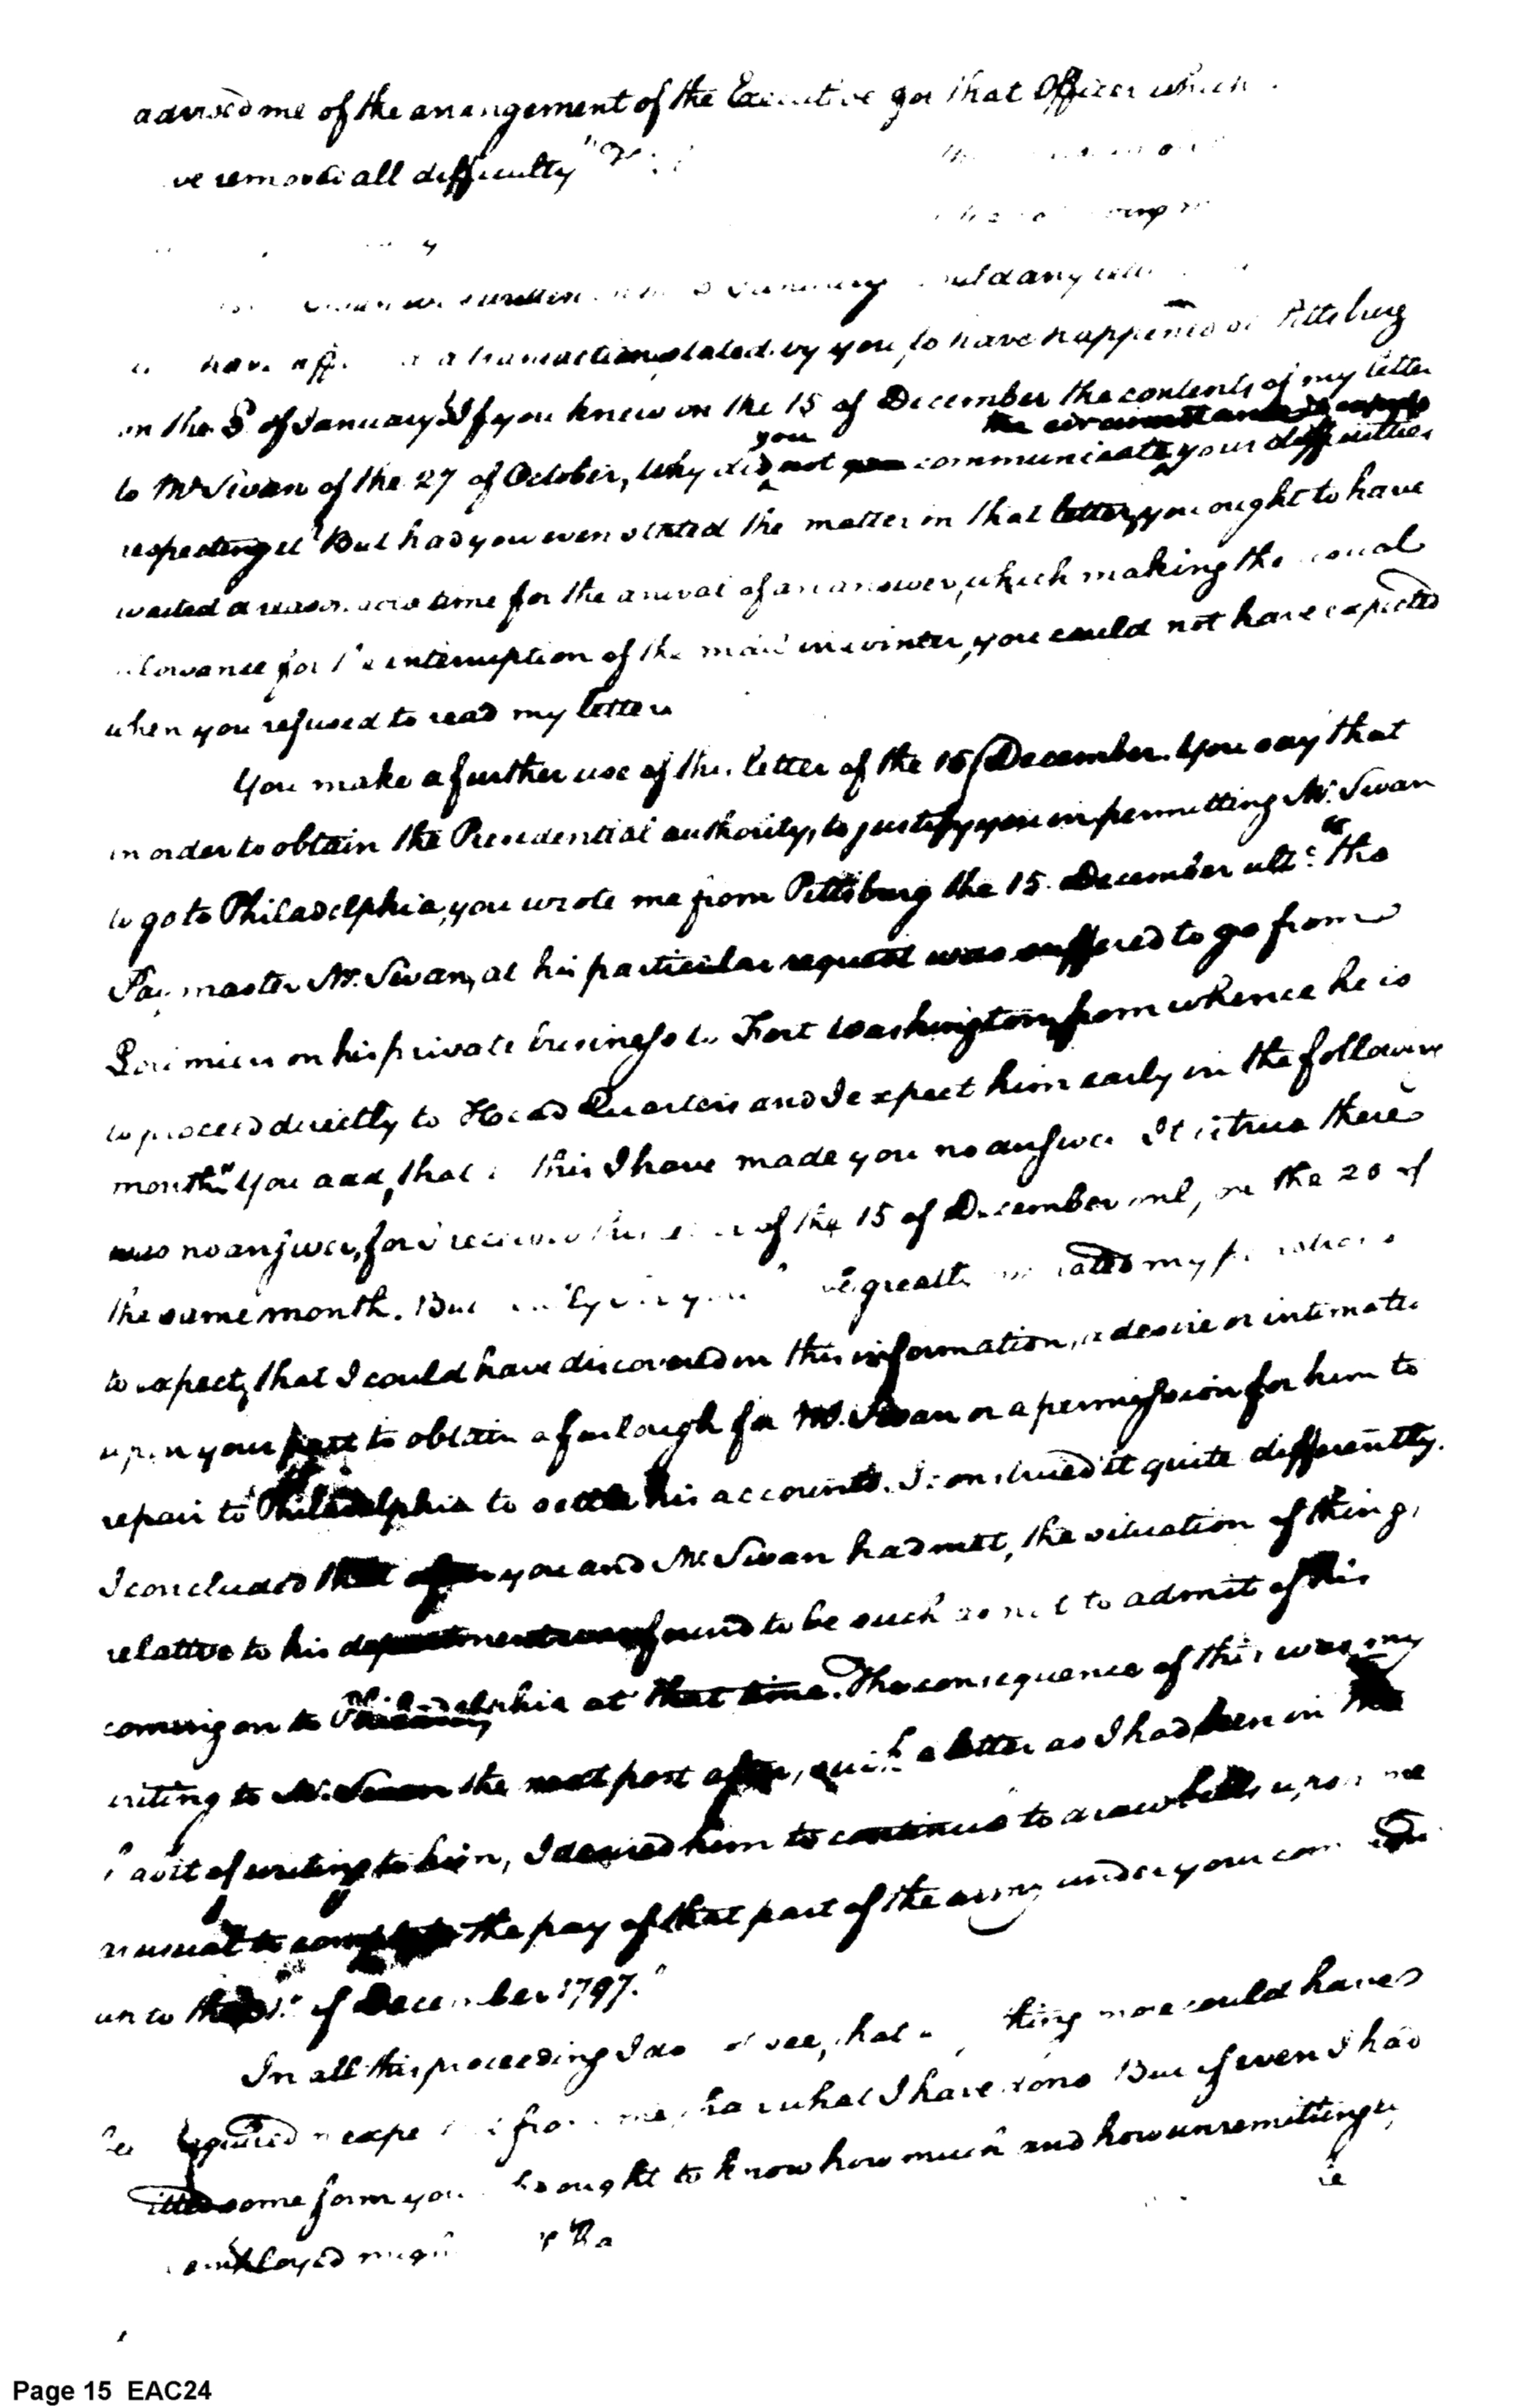 advised me of the arrangement of the Executive for that Officer which
ve removed all difficulty"
written January any
have a transaction, stated by you, to have happened at Pittsburg
on the 3 of January? If you knew on the 15 of December the contents of my letter
to Mr Swan of the 27 of October, why did you not communicate your difficulties
respecting it? But had you even stated the matter in that letter, you ought to have
waited a reasonable time for the arrival of an answer, which making the usual
allowance for the interruption of the mail in winter, you could not have expected
when you refused to read my letters
You make a further use of this letter of the 15 December. You say that
in order to obtain the Presidential authority, to justify you in permitting Mr. Swan
to go to Philadelphia, you wrote me from Pittsburg the 15 December ulto. "the
Paymaster Mr. Swan, at his particular request was suffered to go from
on his private business to Fort Washington, from whence he is
to proceed directly to Head Quarters and I expect him early in the following
month" You add, that to this I have made you no answer It is true there
was no answer, for I received this letter of the 15 of December only on the 28 of
the same month. But greatly my
to expect, that I could have discovered in this information, a desire or intimation
upon your part to obtain a furlough for Mr. Swan or a permission for him to
repair to Philadelphia to settle his accounts. I construed it quite differently.
I concluded that after you and Mr. Swan had met, the situation of things
relative to his department was found to be such as not to admit of his
coming on to Philadelphia at that time. The consequence of this was my
writing to Mr. Swan the next post after, such a letter as I had been in the
habit of writing to him, I desired him to continue to draw bills upon me
as usual to complete the pay of that part of the army under your command
up to the 31st of December 1797.
In all this proceeding I do not see, that any thing more could have
been required or expected from me, than what I have done But if even I had
omitted some form you ought to know how much and how unremittingly
employed
Page 15 EAC24